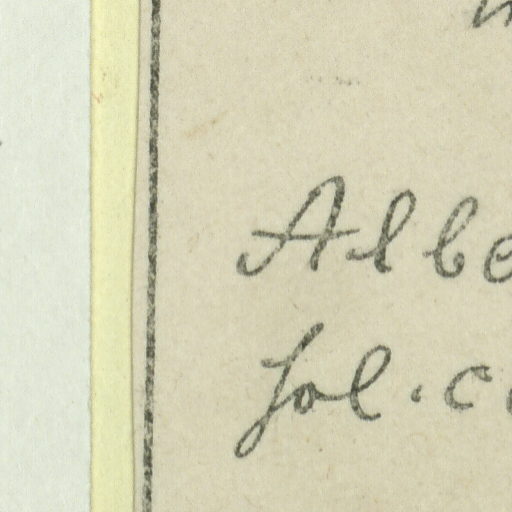 Albe
fol. c